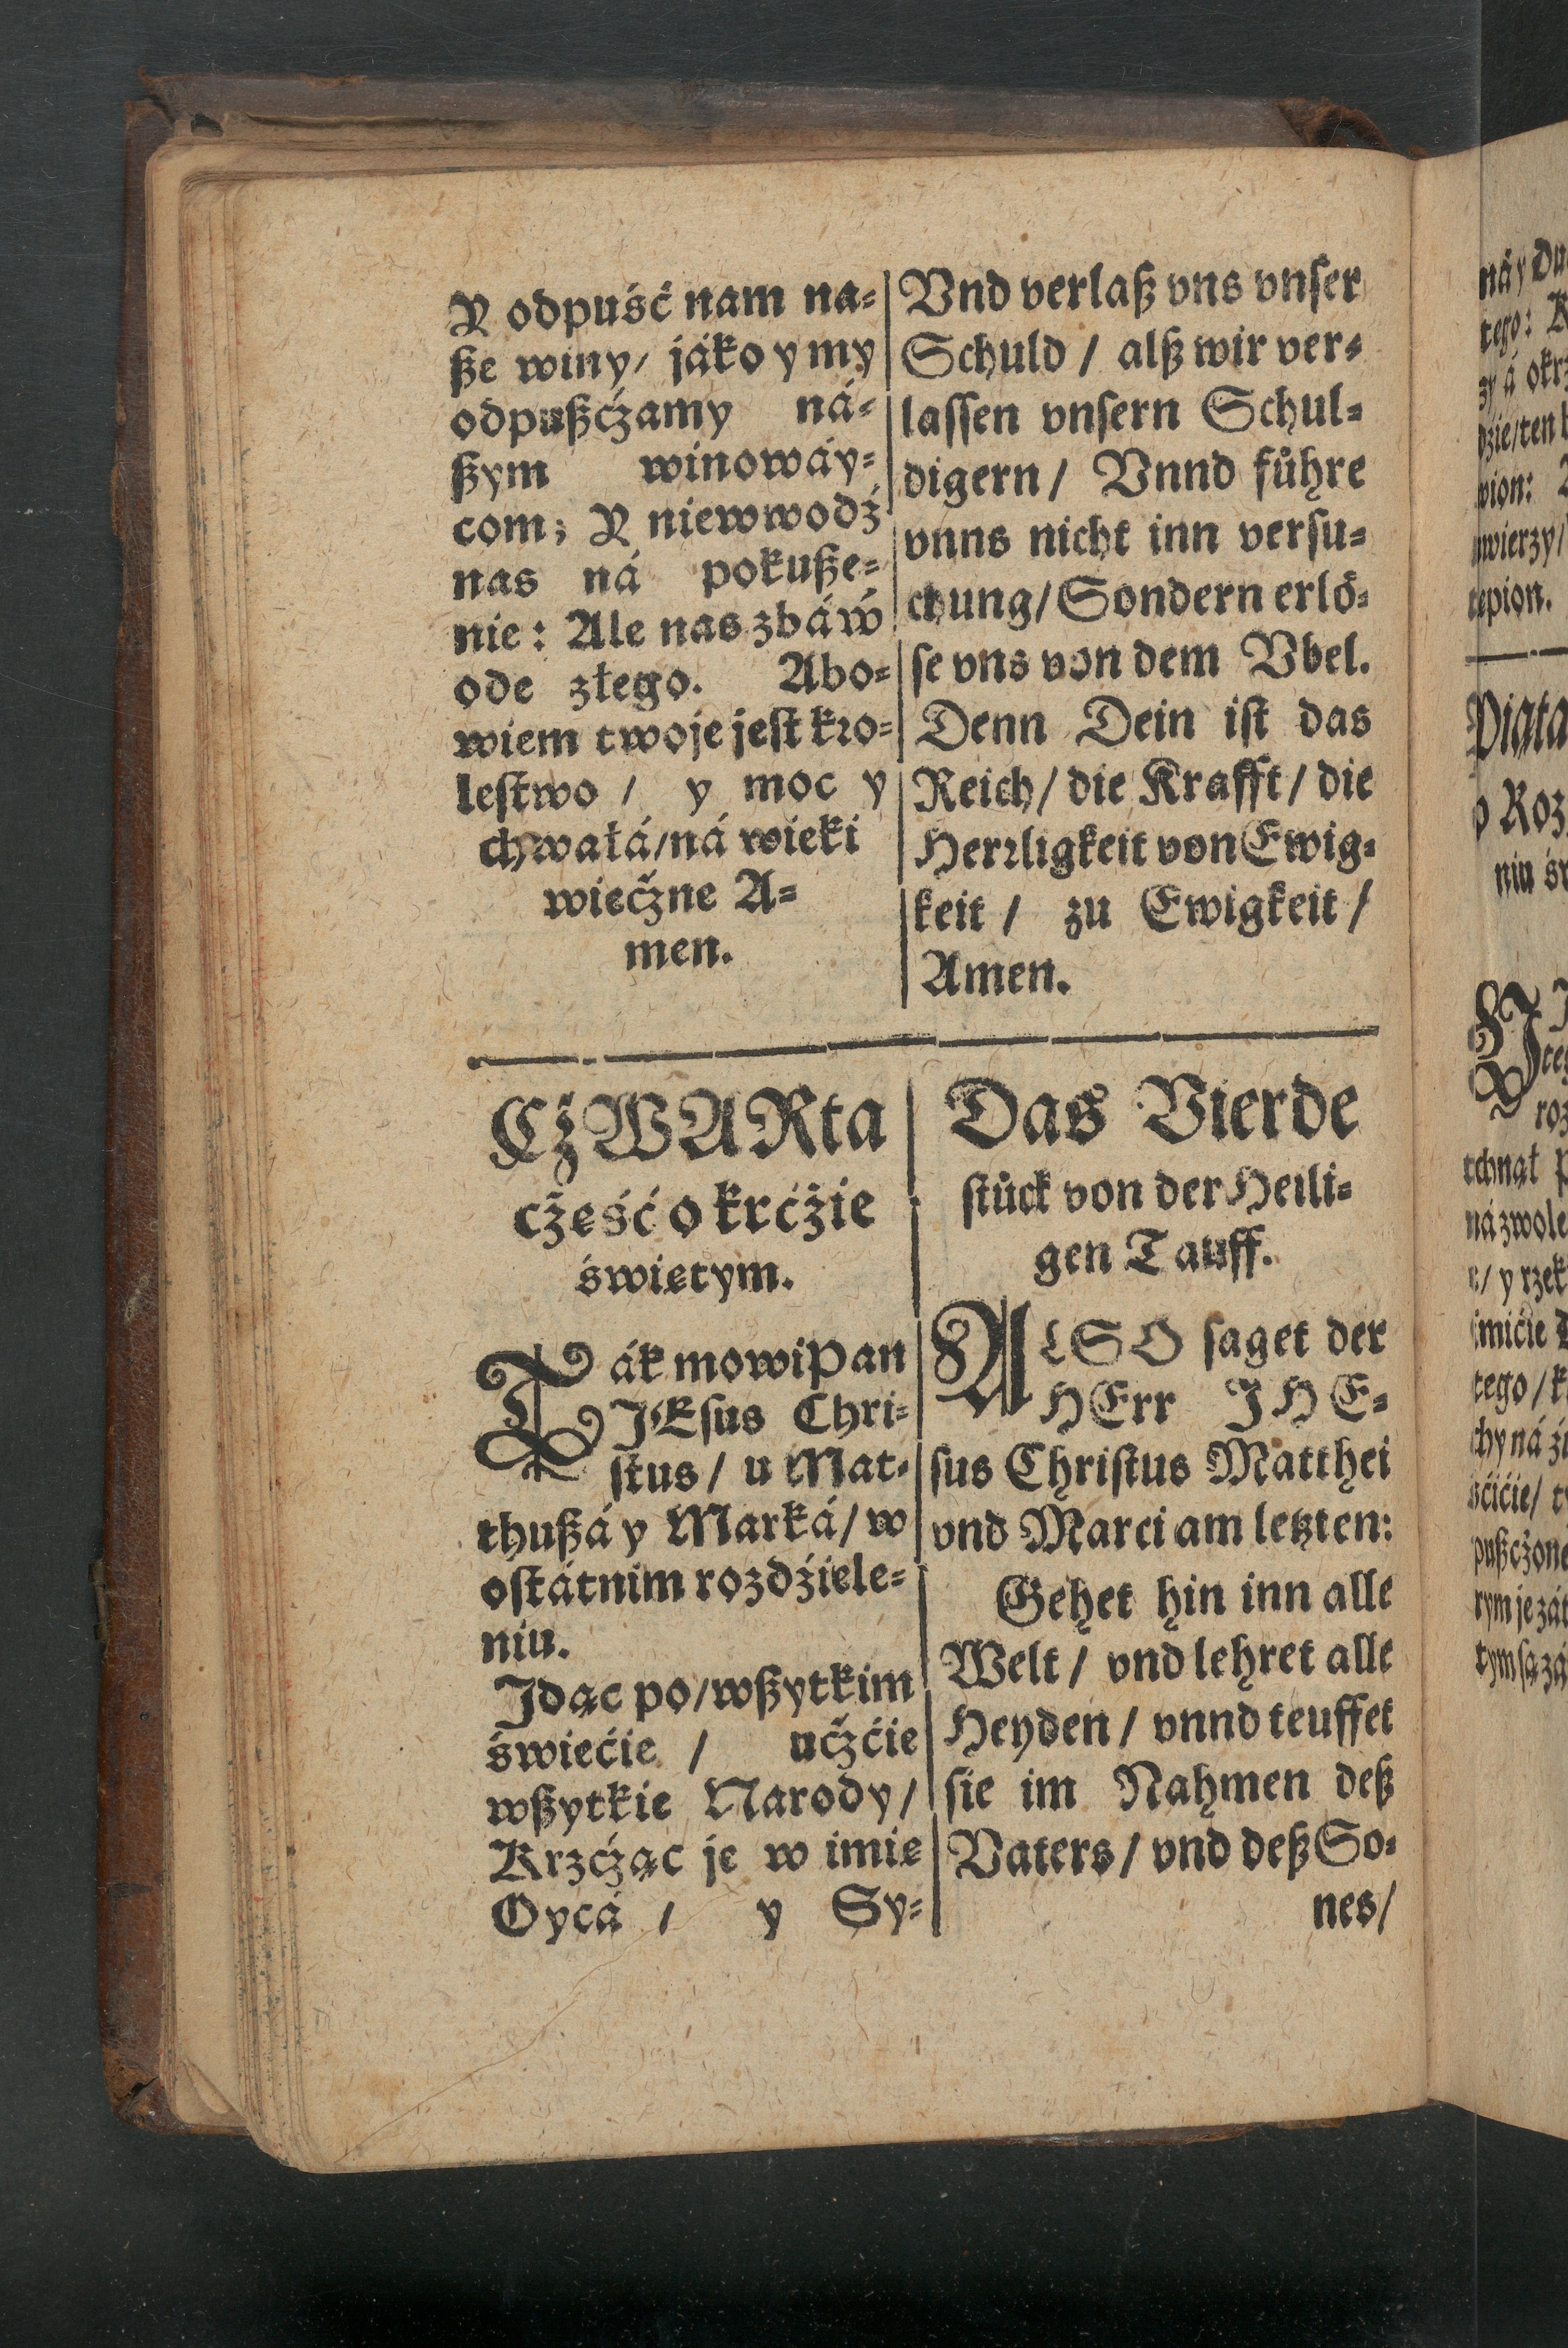 Y odpuść nam na=
ße winy/ jáko y my
odpußćżamy ná=
ßym winowáy=
com; Y niewwodź
nas ná pokuße=
nie: Ale nas zbáẃ
ode złego. Abo=
wiem twoje jeſt kro=
leſtwo / y moc y
chwałá/ná wieki
wiecżne A=
men.
Vnd verlaß vns vnſer
Schuld / alß wir ver=
laſſen vnſern Schul=
digern / Vnnd fuͤhre
vnns nicht inn verſu=
chung/Sondern erloͤ=
ſe vns von dem Vbel.
Denn Dein iſt das
Reich / die Krafft / die
Herrligkeit von Ewig=
keit / zu Ewigkeit /
Amen.
CżWARta
cżęść o krćżie
świętym.
Ták mowi Pan
JEſus Chri=
ſtus / u Mat=
thußá y Marká / w
oſtátnim rozdźiele=
niu.
Jdąc po/wßytkim
świećie / ucżćie
wßytkie Narody /
Krzcżąc je w imię
Oycá / y Sy=
Das Vierde
ſtuͤck von der Heili=
gen Tauff.
ALSO ſaget der
HErr JHE=
ſus Chriſtus Matthei
vnd Marci am letzten:
Gehet hin inn alle
Welt / vnd lehret alle
Heyden / vnnd teuffet
ſie im Nahmen deß
Vaters / vnd deß So=
nes/